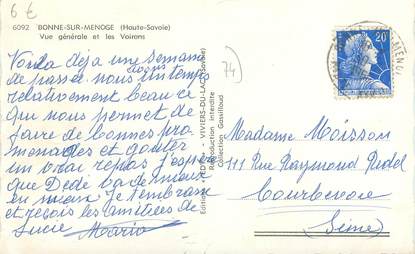 6 €
6092 BONNE-SUR-MENOGE (Haute-Savoie)
Vue générale et les Voirons
Voilà déjà une semaine
de passée nous un temps
sous
relativement beau ce
qui nous permet de
faire de bonnes pro
menades et goûter
un vrai repos j'espère
que Dédé va de mieux
en mieux je t'embrasse
et reçois les amitiées de
Lucie Mario
74
VIVIERS-DU-LAC (Savoie)
Reproduction interdite
Collection Gassilloud
20F
Madame Moisson
111 Rue Raymond Ridel
Courbevoie
Seine